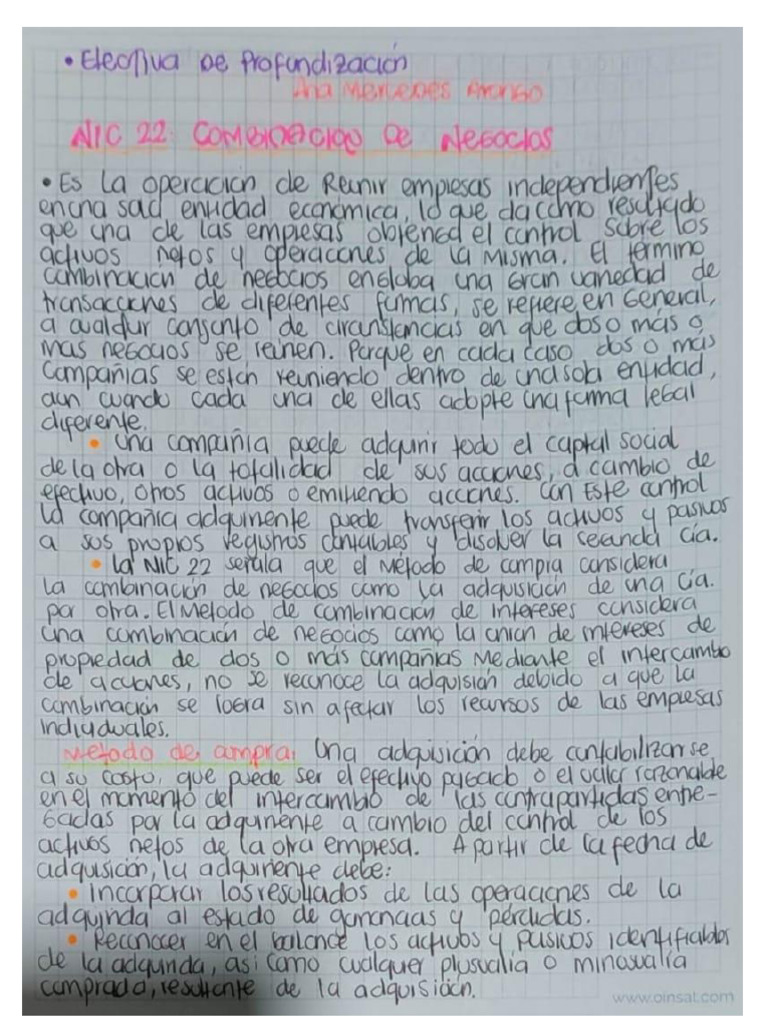 • Electiva De Profundización
Ana Mercedes Arango
NIC 22. COMBINACIÓN De NeGocios
• Es la operación de Reunir empresas independientes
en una sola entidad económica, lo que da como resultado
que una de las empresas obtenga el control sobre los
activos netos y operaciones de la misma. El término
combinación de negocios engloba una Gran variedad de
transacciones de diferentes formas, se refiere, en General,
a cualquir conjunto de circunstancias en que dos o más o
mas negocios se reunen. Porque en cada caso dos o más
Compañias se estan reuniendo dentro de una sola entidad,
aun cuando cada una de ellas adopte una forma legal
diferente.
• Una compañia puede adquirir todo el captal social
de la otra o la totalidad de sus acciones, a cambio de
efectivo, otros activos o emitiendo acciones. Con Este control
la compañia adquirente puede transferir los activos y pasivos
a sus propios registros contables y disolver la segunda cía.
• La NIC 22 señala que el Método de compra considera
la combinación de negocios como la adquisición de una cía.
por otra. El Metodo de combinación de intereses considera
una combinación de negocios como la union de intereses de
propiedad de dos o más compañias Mediante el intercambio
de acciones, no se reconoce la adquisión debido a que la
combinación se logra sin afectar los recursos de las empresas
individuales.
Metodo de compra: Una adquisición debe contabilizarse
a su costo, que puede ser el efectivo pagado o el valor razonable
en el momento del intercambio de las contrapartidas entre-
gadas por la adquirente a cambio del control de los
activos netos de la otra empresa. A partir de la fecha de
adquisición, la adquirente debe:
• Incorporar los resultados de las operaciones de la
adquirida al estado de ganancias y pérdidas.
• Reconocer en el balance los activos y pasivos identificables
de la adquirida, así como cualquer plusvalía o minusvalía
comprada, resultante de la adquisición.
www.oinsat.com